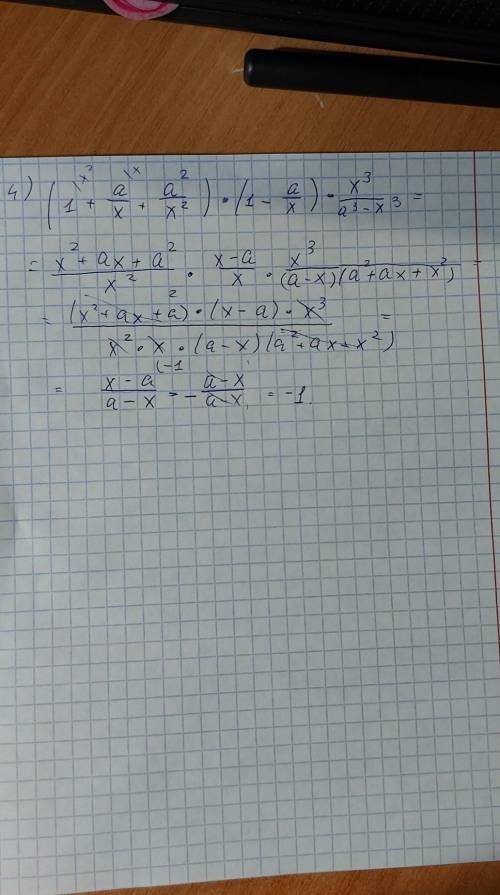 4) (1\x² + a/x\x + a²/x²) · (1 - a/x) · x³/(a³-x³) =
= (x² + ax + a²)/x² · (x-a)/x · x³/((a-x)(a²+ax+x²)) =
= ((x²+ax+a²) · (x-a) · x³)/(x² · x · (a-x)(a²+ax+x²)) =
= (x-a)/(a-x) (-1 = - (a-x)/(a-x) = -1.